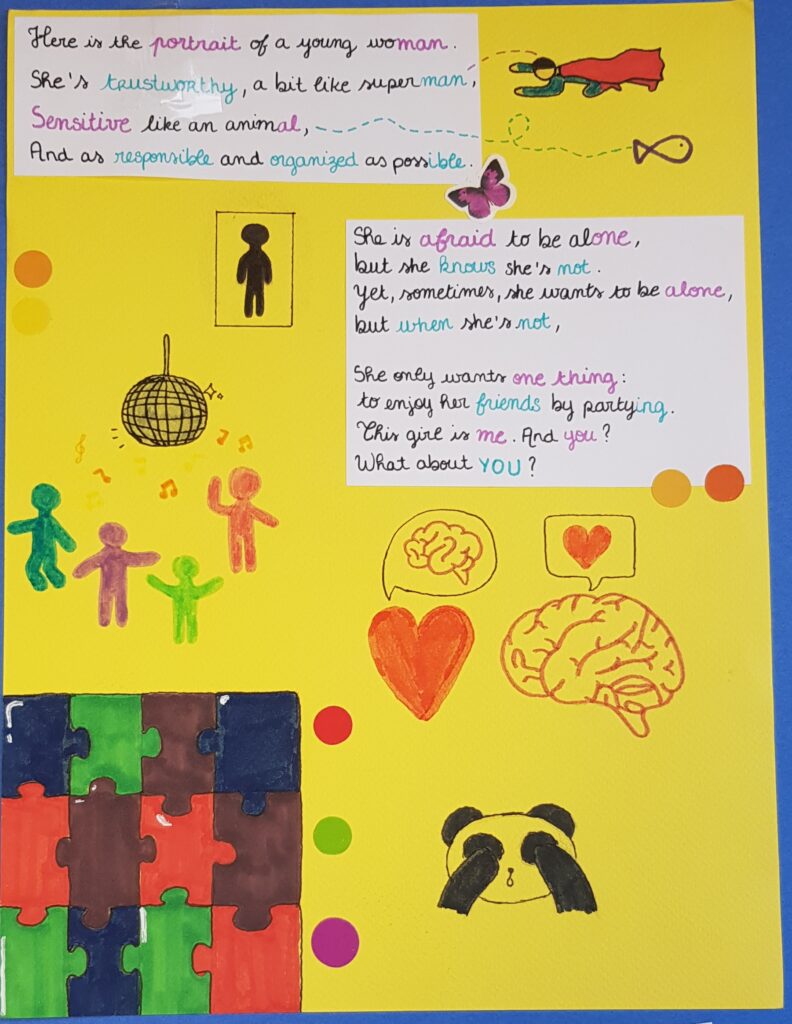 Here is the portrait of a young woman.
She's trustworthy, a bit like superman,
Sensitive like an animal,
And as responsible and organized as possible.
She is afraid to be alone,
but she knows she's not.
Yet, sometimes, she wants to be alone,
but when she's not,
She only wants one thing:
to enjoy her friends by partying.
This girl is me. And you?
What about YOU?